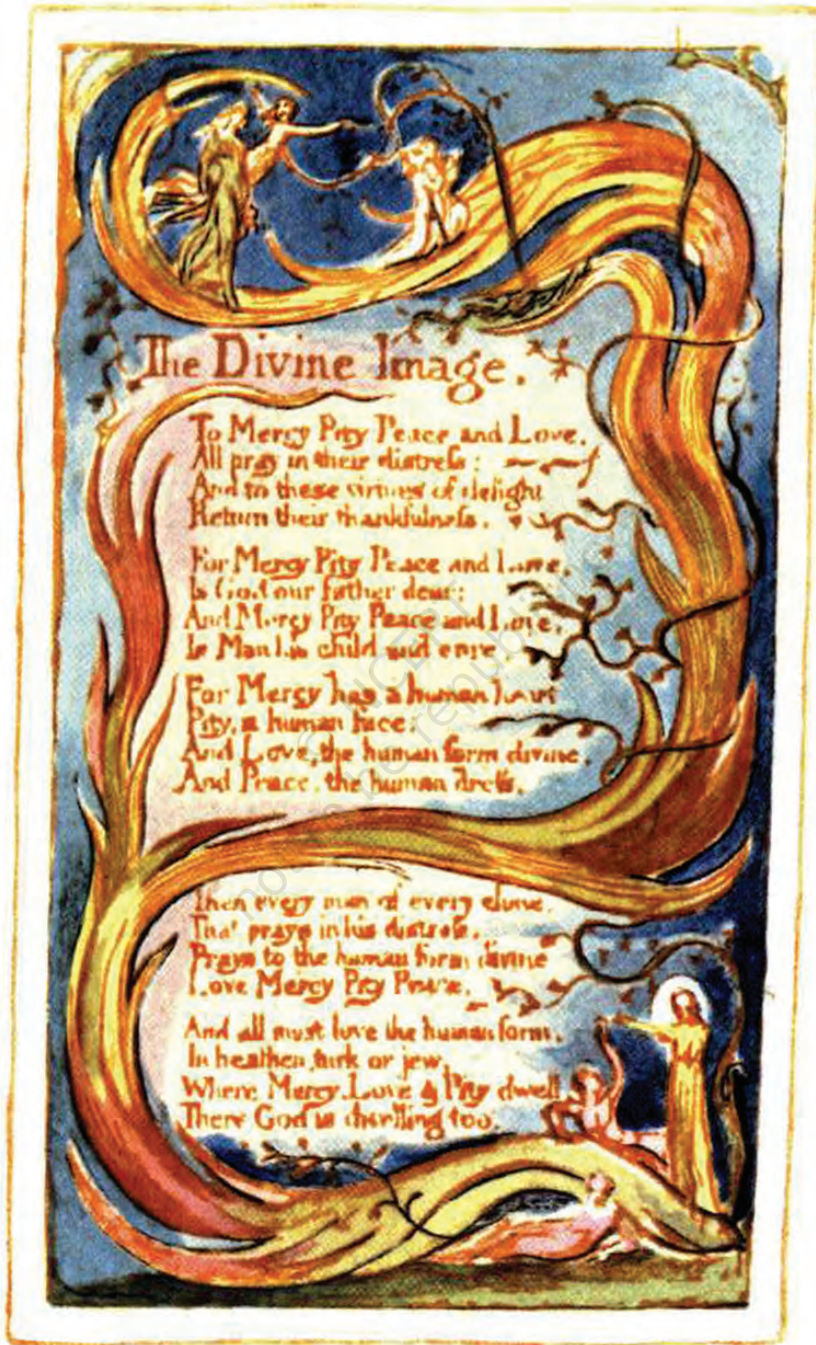 The Divine Image.
To Mercy Pity Peace and Love,
All pray in their distress:
And to these virtues of delight
Return their thankfulness.
For Mercy Pity Peace and Love,
Is God our father dear:
And Mercy Pity Peace and Love,
Is Man his child and care.
For Mercy has a human heart
Pity, a human face:
And Love, the human form divine,
And Peace, the human dress.
Then every man of every clime,
That prays in his distress,
Prays to the human form divine
Love Mercy Pity Peace.
And all must love the human form,
In heathen, turk or jew,
Where Mercy, Love & Pity dwell
There God is dwelling too.
© NCERT
not to be republished